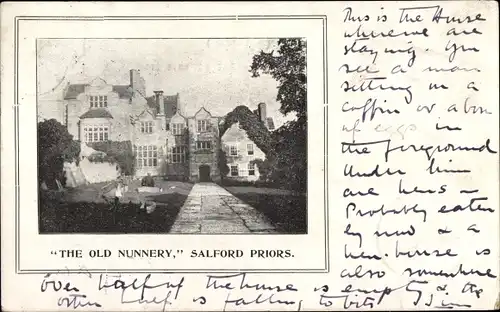 This is the House
where we are
staying. You
see a man
sitting on a
coffin or a box
of eggs in
the foreground
Under him
are hens –
Probably eaten
by now & a
hen-house is
also somewhere
"THE OLD NUNNERY," SALFORD PRIORS.
over half of the house is empty & the
other half is falling to bits. Jim